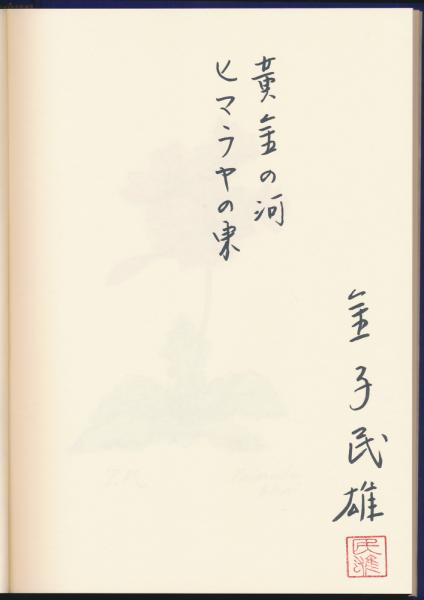 黄金の河
ヒマラヤの東
金子民雄